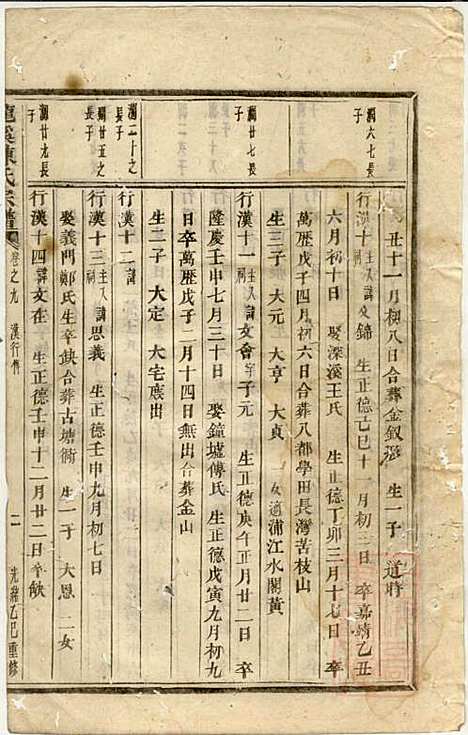 丑十一月初八日合葬金釵形 生一子 道時
潤六七長子
行漢十主入祠諱文錦 生正德己巳十一月初二日 卒嘉靖乙丑
六月初十日 娶深溪王氏 生正德丁卯三月十七日 卒
萬歷戊子四月初六日合葬八都學田長灣苦枝山
生三子 大元 大亨 大貞 一女適浦江水閣黃
潤廿七長子
行漢十一主入祠諱文會字子元 生正德庚午正月廿二日 卒
隆慶壬申七月三十日 娶鐘墟傅氏 生正德戊寅九月初九
日卒萬歷戊子二月十四日無出合葬金山
生二子大定 大宅應出
潤二十之長子
行漢十二諱
潤廿五之長子
行漢十三主入祠諱思義 生正德壬申九月初七日
娶義門鄭氏生卒缺合葬古塘衕 生一子 大恩 二女
潤廿九長子
行漢十四諱文在 生正德壬申十二月廿二日卒缺
龍溪陳氏宗譜 卷之九 漢行傳 二 光緒乙巳重修